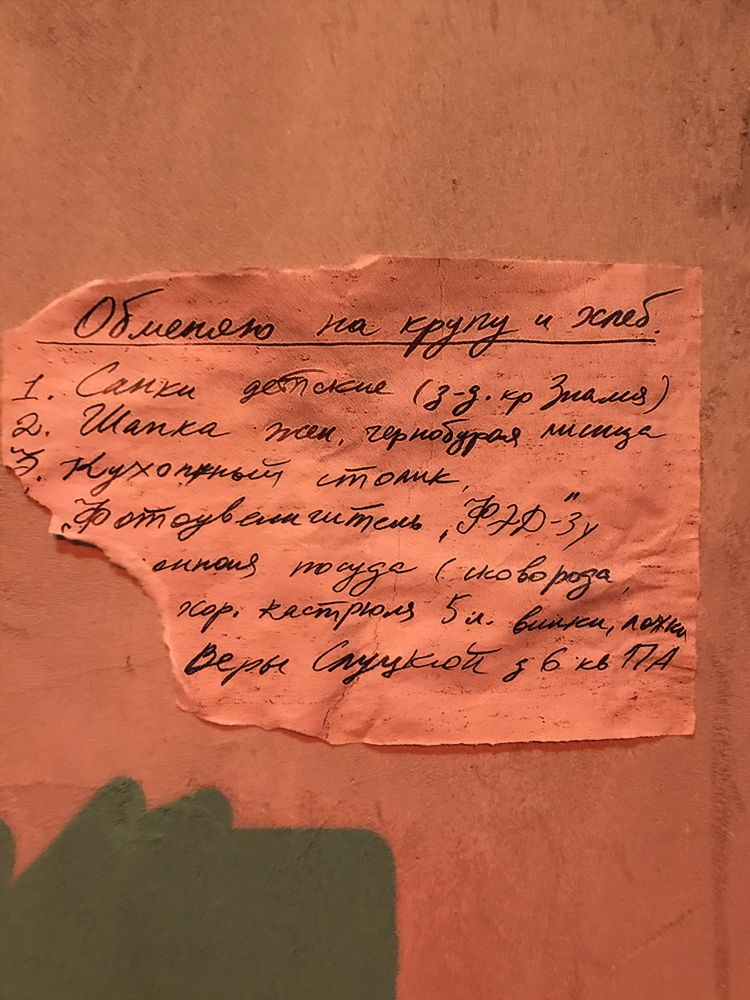 Обменяю на крупу и хлеб.
1. Санки детские (з-д. кр Знамя)
2. Шапка жен. чернобурая лисица
3. Кухонный столик,
Фотоувеличитель, "ФЭД"-3у
енная посуда (сковорода,
хор. кастрюля 5 л. вилки, ложки
Веры Слуцкой д 6 кв